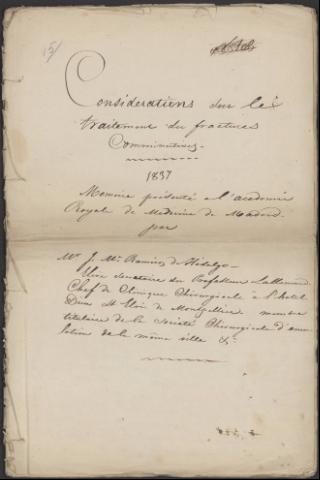 15
Considerations sur le
traitement du fractures
Comminutives.
1837
Memoire présenté a l'academie
Royal de Medecine de Madrid.
par
Mr J. Mr Ramirez de Hidalgo.
Secretaire du Professeur Lallemand
Chef de Clinique Chirurgicale à l'hotel
Dieu St Eloi de Montpellier membre
titulaire de la société Chirurgicale d'emu
lation de la même ville &.